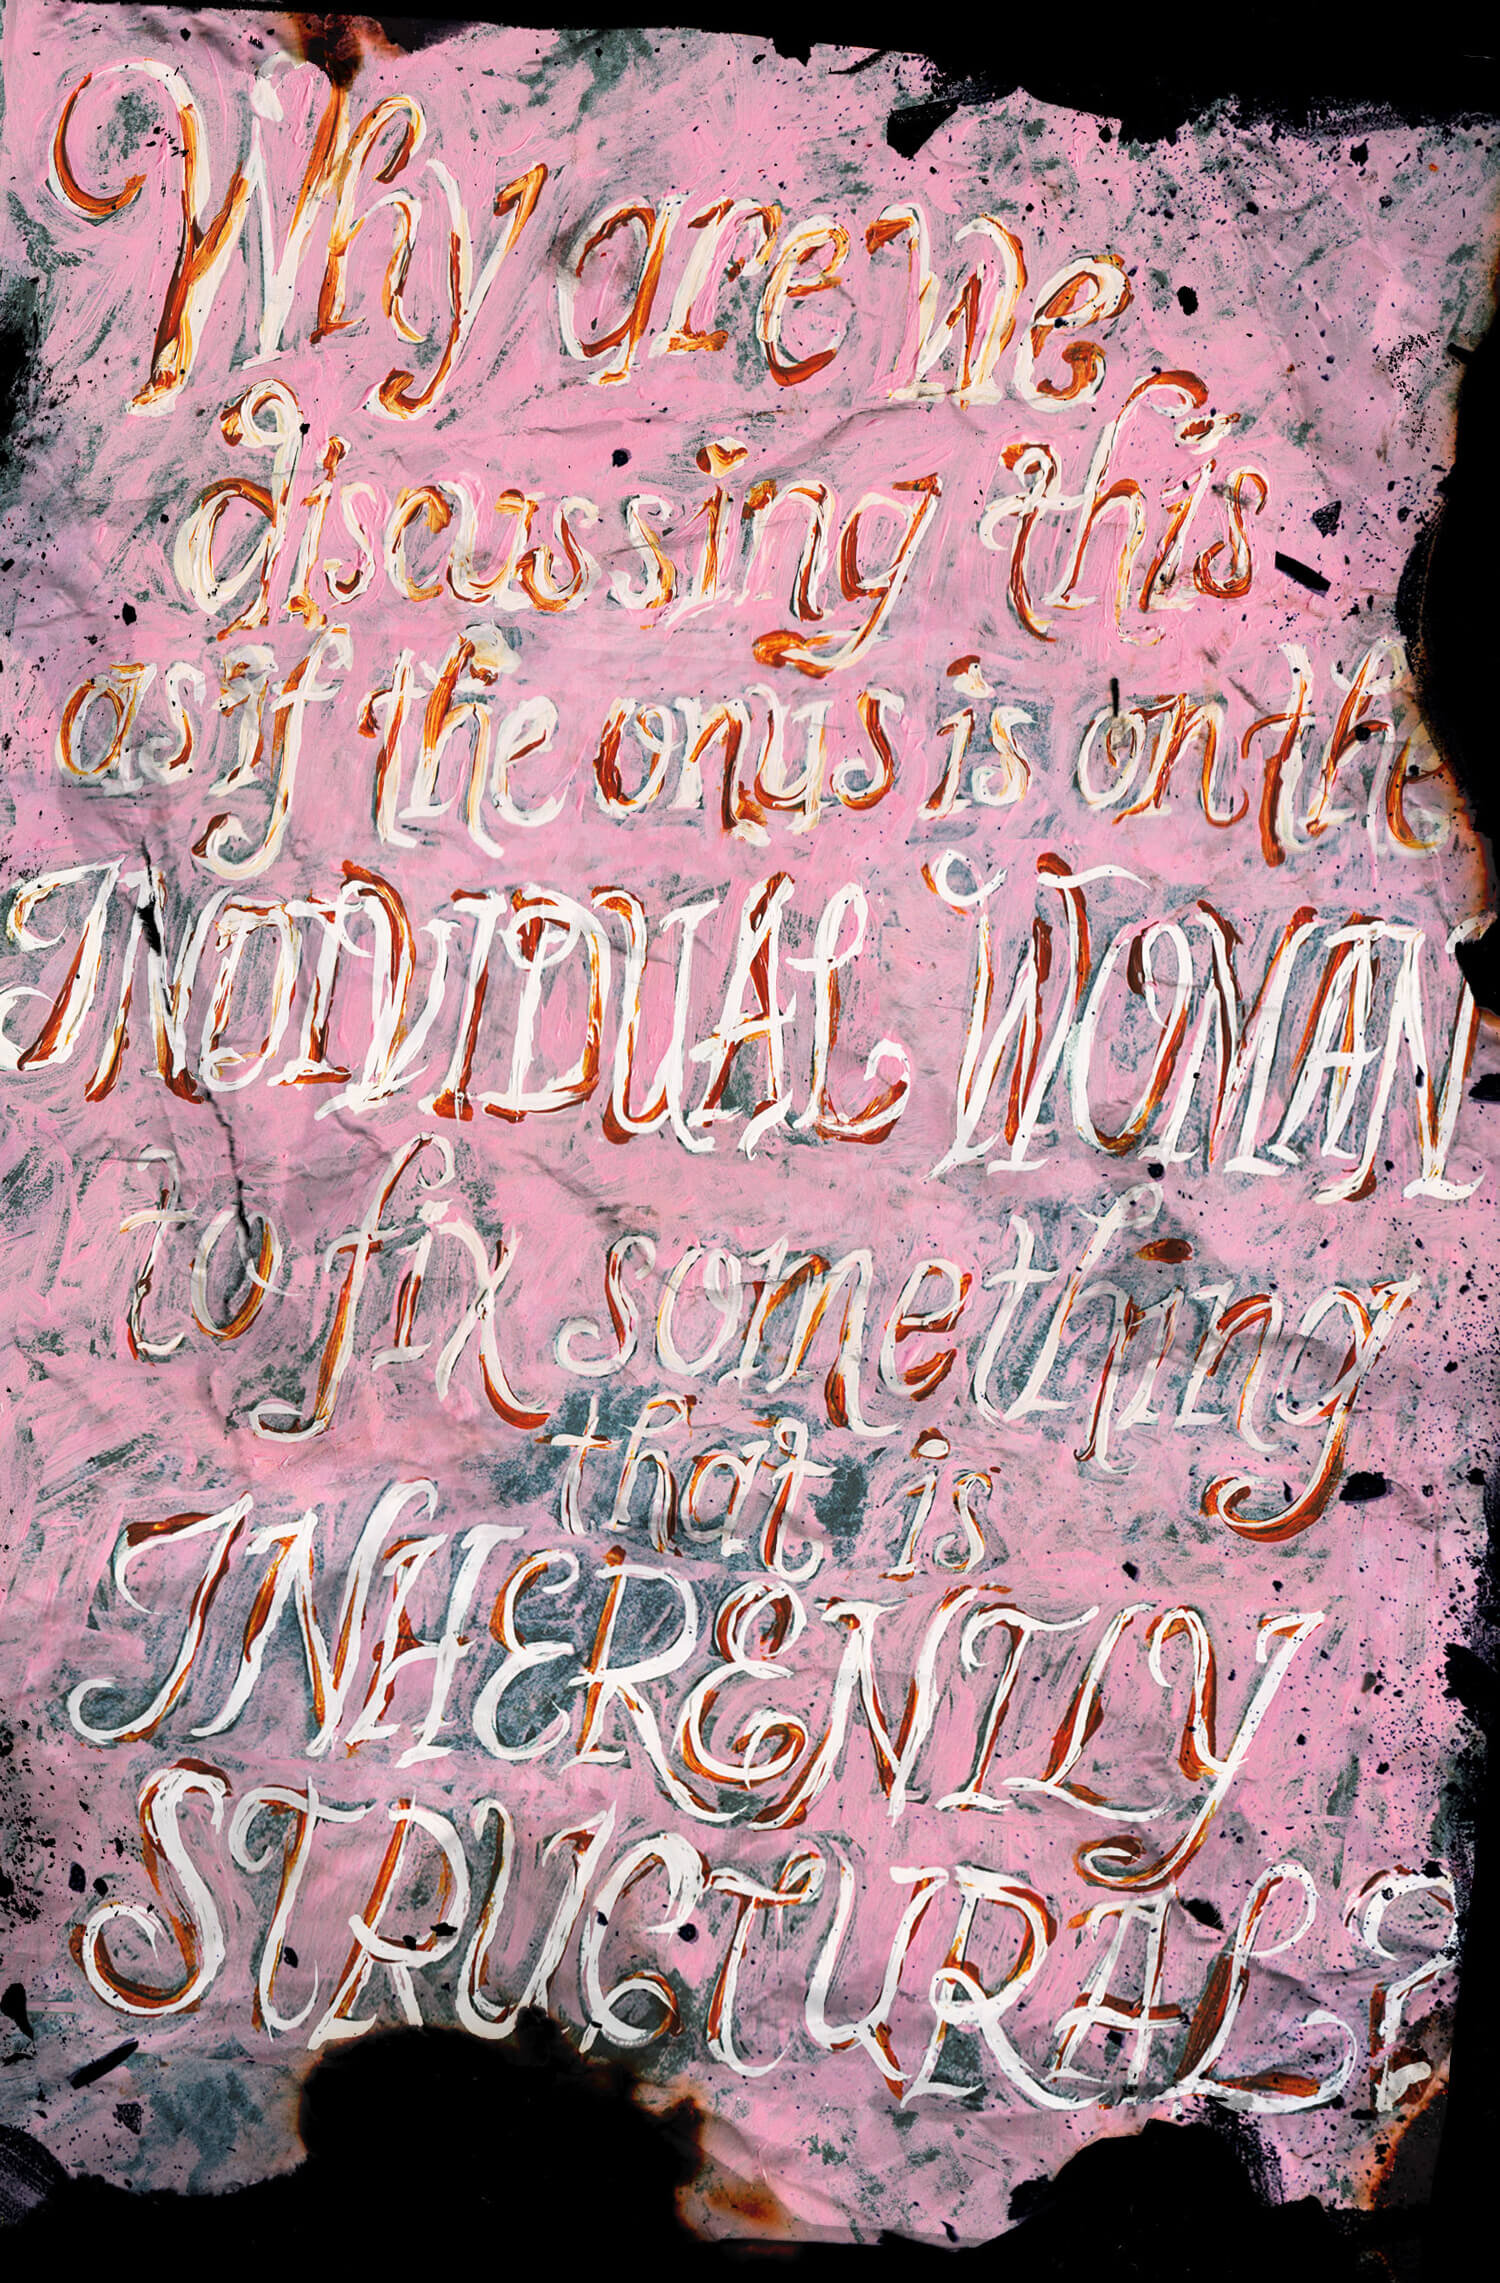 Why are we
discussing this
as if the onus is on the
INDIVIDUAL WOMAN
to fix something
that is
INHERENTLY
STRUCTURAL?